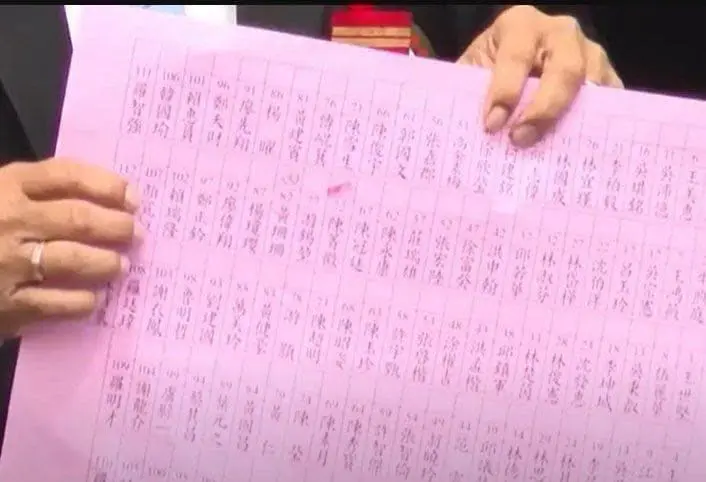 6 王美惠
王鴻薇
8 伍麗華
11 吳沛憶
12 吳宗憲
13 吳秉叡
16 吳琪銘
17 呂玉玲
18 李坤城
21 李柏毅
22 沈伯洋
23 沈發惠
26 林宜瑾
27 林岱樺
28 林俊憲
31 林國成
32 林淑芬
33 林楚茵
邱志偉
37 邱若華
38 邱鎮軍
柯建銘
42 洪申翰
43 洪孟楷
44 范
欣瑩
47 徐富癸
48 徐巧芯
49 翁曉玲
51 高金素梅
52 張宏陸
53 張啓楷
54 張智倫
56 張嘉郡
57 莊瑞雄
58 許宇甄
59 許智傑
61 郭國文
62 陳永康
63 陳玉珍
64 陳秀寳
66 陳俊宇
67 陳冠廷
68 陳昭姿
69 陳素月
71 陳雪生
陳菁徽
73 陳超明
74 陳 瑩
76 傅崐萁
游錫堃
78 游 顥
79 黃 仁
81 黃建賓
82 黃珊珊
83 黃健豪
84 黃國昌
86 楊 曜
87 楊瓊瓔
88 萬美玲
89 葉元之
91 廖先翔
92 廖偉翔
93 劉建國
94 蔡其昌
96 鄭天財
97 鄭正鈐
98 魯明哲
99 盧縣一
101 賴惠員
102 賴瑞隆
103 謝衣鳳
104 謝龍介
106 韓國瑜
107 顏
108 羅廷瑋
109 羅明才
111 羅智強
112